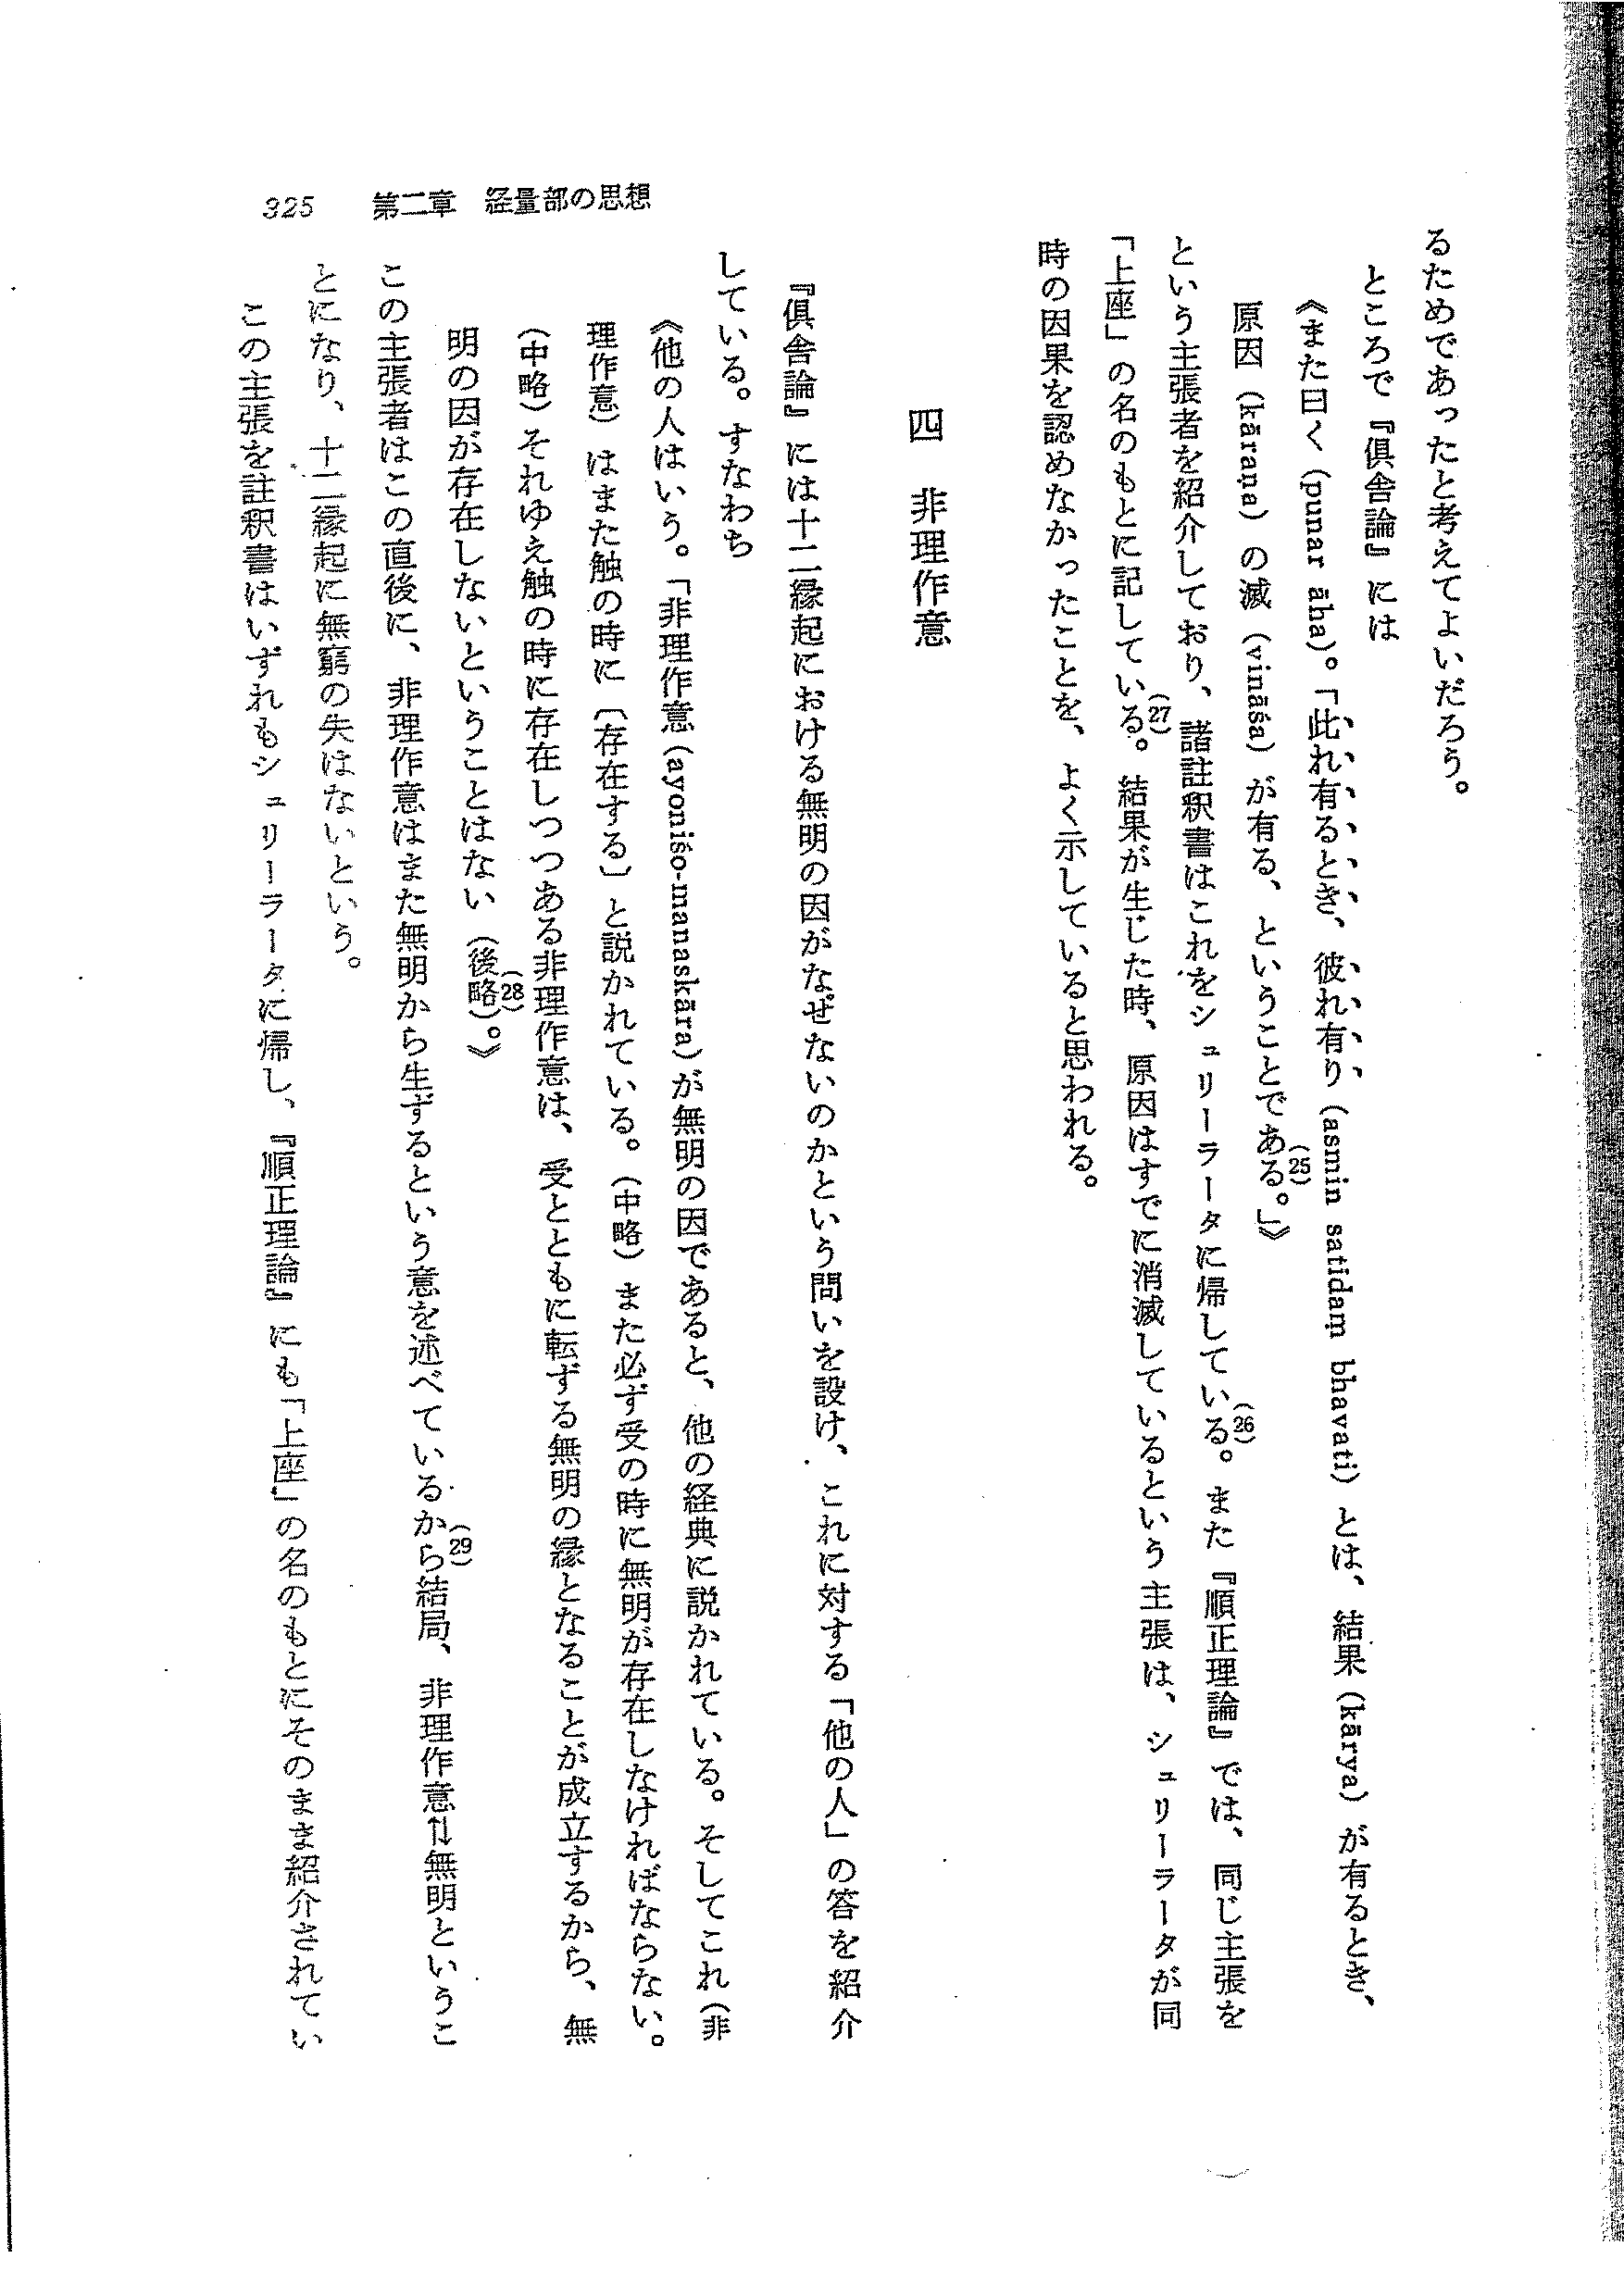 325　第二章　経量部の思想
るためであったと考えてよいだろう。
ところで『倶舎論』には
《また曰く(punar āha)。「此れ有るとき、彼れ有り(asmin satidaṃ bhavati)とは、結果(kārya)が有るとき、
原因(kāraṇa)の滅(vināśa)が有る、ということである。」》(25)
という主張者を紹介しており、諸註釈書はこれをシュリーラータに帰している(26)。また『順正理論』では、同じ主張を
「上座」の名のもとに記している(27)。結果が生じた時、原因はすでに消滅しているという主張は、シュリーラータが同
時の因果を認めなかったことを、よく示していると思われる。
四　非理作意
『倶舎論』には十二縁起における無明の因がなぜないのかという問いを設け、これに対する「他の人」の答を紹介
している。すなわち
《他の人はいう。「非理作意(ayoniśo-manaskāra)が無明の因であると、他の経典に説かれている。そしてこれ(非
理作意)はまた触の時に〔存在する〕と説かれている。(中略)また必ず受の時に無明が存在しなければならない。
(中略)それゆえ触の時に存在しつつある非理作意は、受とともに転ずる無明の縁となることが成立するから、無
明の因が存在しないということはない(後略)。》(28)
この主張者はこの直後に、非理作意はまた無明から生ずるという意を述べているから(29)結局、非理作意⇅無明というこ
とになり、十二縁起に無窮の失はないという。
この主張を註釈書はいずれもシュリーラータに帰し、『順正理論』にも「上座」の名のもとにそのまま紹介されてい